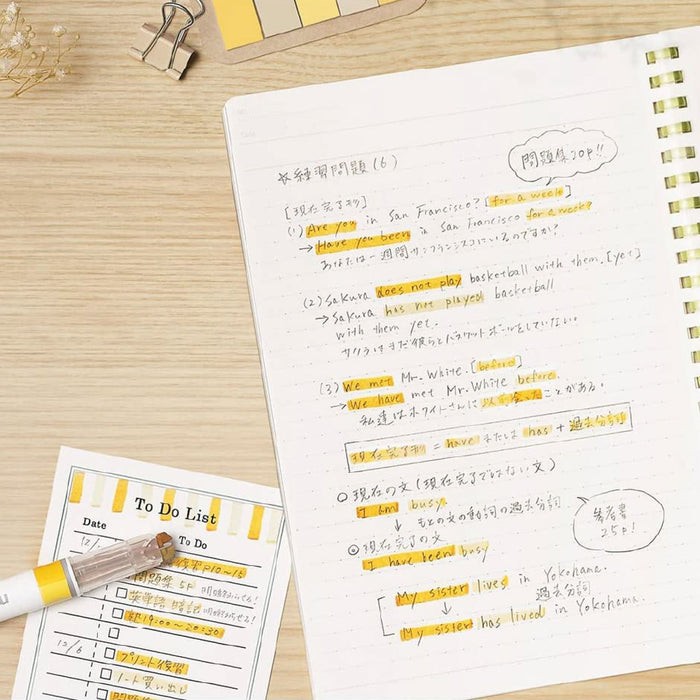 ☆練習問題(6)
問題集20P!!
[現在完了形]
(1) Are you in San Francisco? [for a week]
→Have you been in San Francisco for a week?
あなたは一週間サンフランシスコにいるのですか?
(2) Sakura does not play basketball with them. [yet]
→Sakura has not played basketball
with them yet.
サクラはまだ彼らとバスケットボールをしていない。
(3) We met Mr. White. [before]
→We have met Mr. White before.
私達はホワイトさんに以前会ったことがある。
現在完了形 = have または has + 過去分詞
○現在の文(現在完了ではない文)
I am busy.
↓ もとの文の動詞の過去分詞
◎現在完了の文
I have been busy
参考書
25P!
My sister lives in Yokohama.
↓ 過去分詞
My sister has lived in Yokohama.
To Do List
Date To Do
12/
P10~15
問題集 5P
英単語 暗記
19:00~20:30
12/6 プリント復習
ノート買い出し